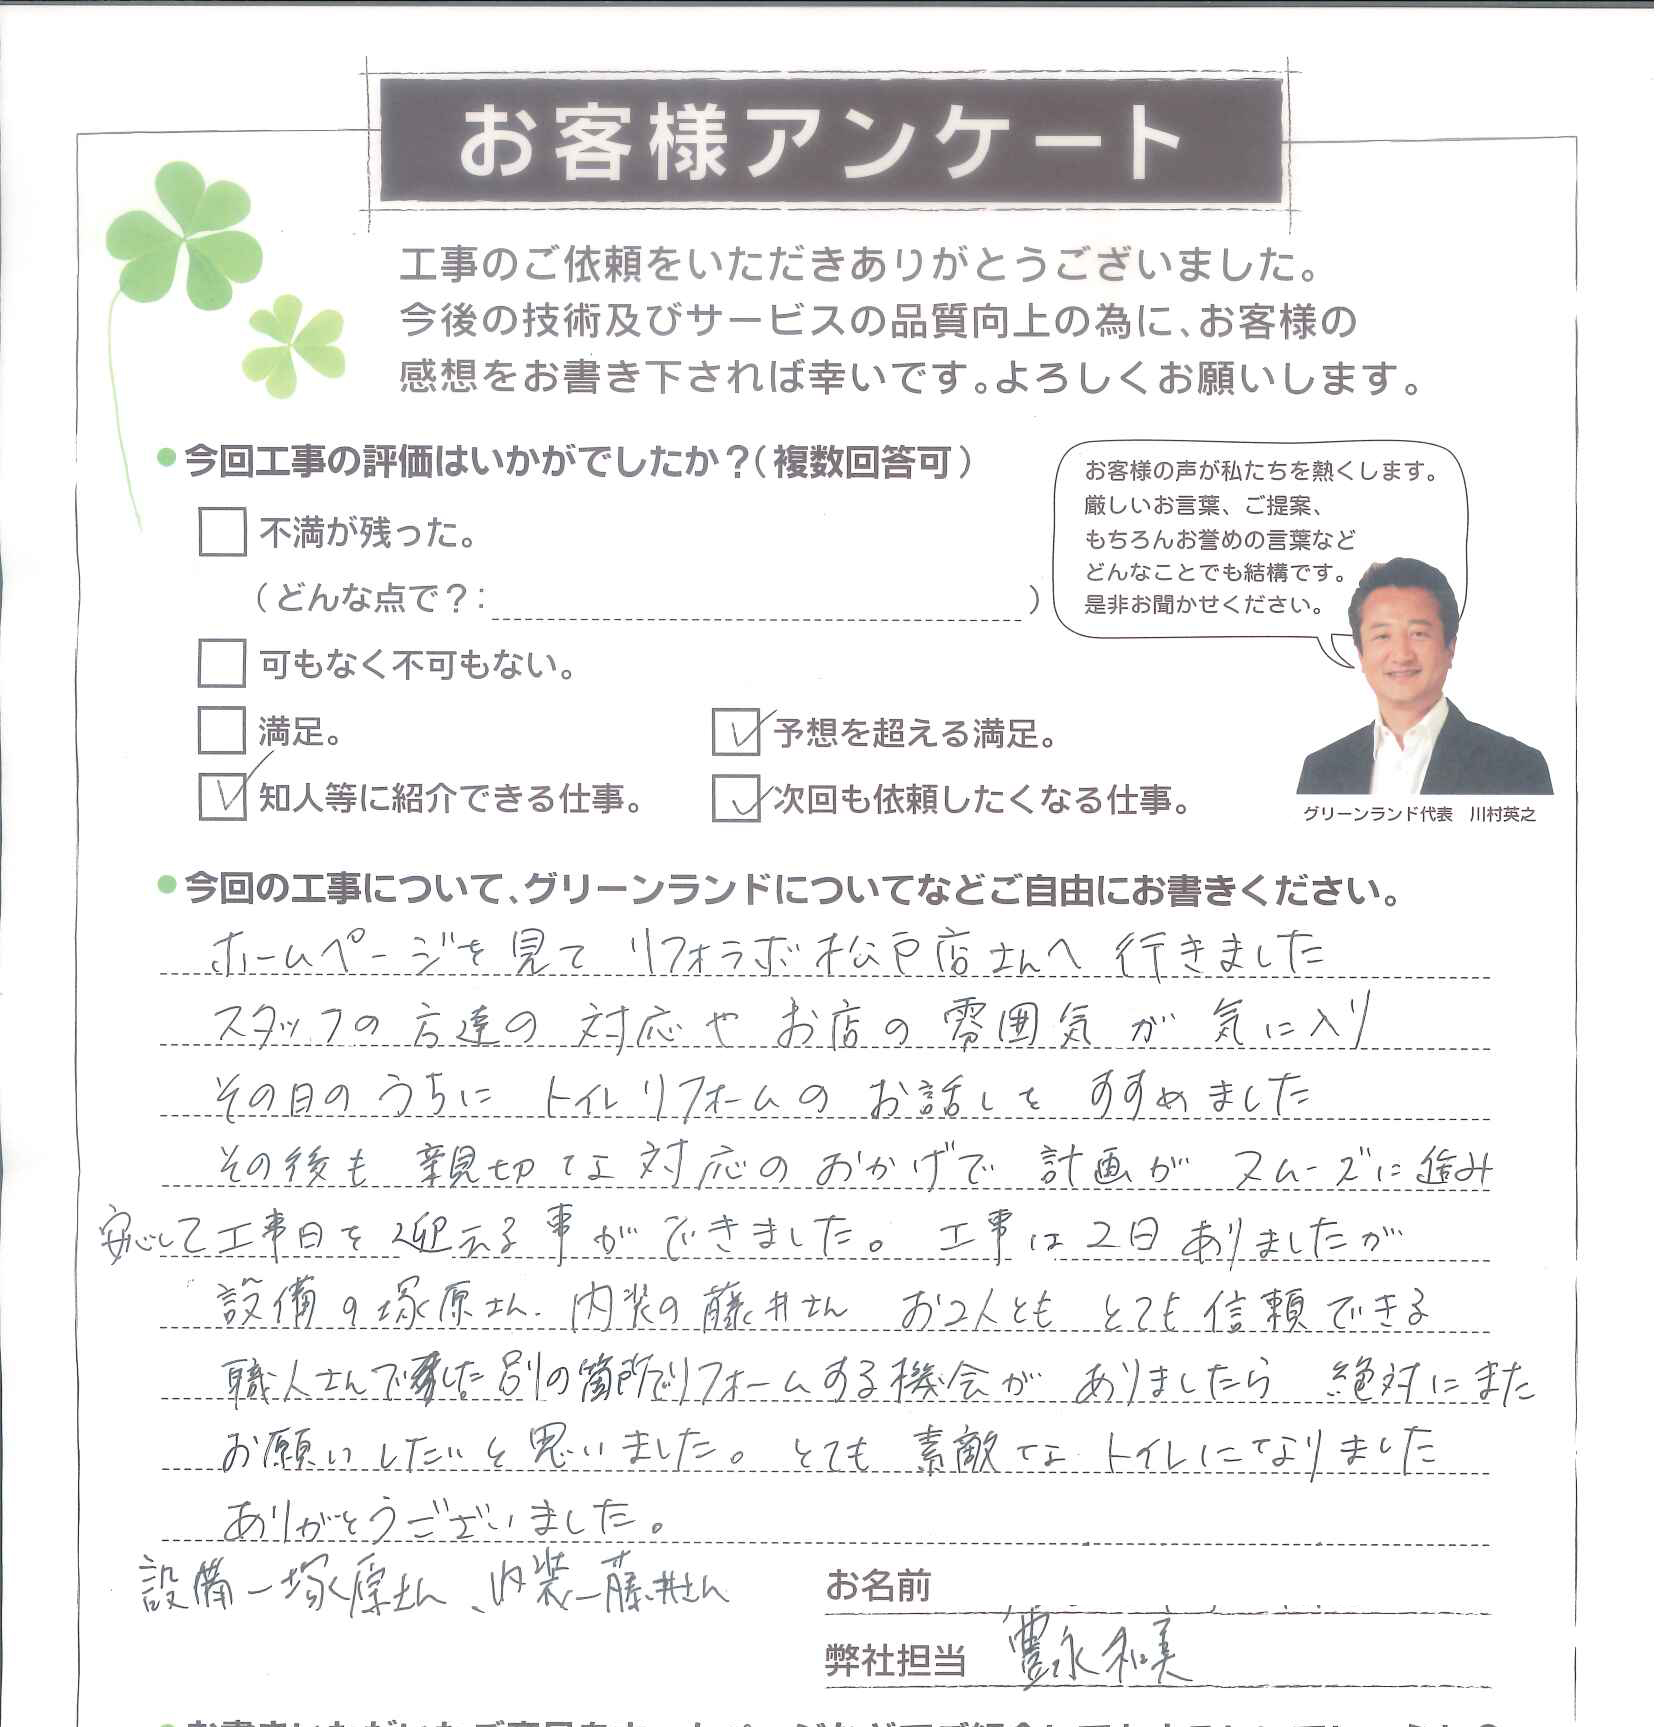 お客様アンケート
工事のご依頼をいただきありがとうございました。
今後の技術及びサービスの品質向上の為に、お客様の
感想をお書き下されば幸いです。よろしくお願いします。
今回工事の評価はいかがでしたか？（複数回答可）
不満が残った。
（どんな点で？： ）
可もなく不可もない。
満足。
予想を超える満足。
知人等に紹介できる仕事。
次回も依頼したくなる仕事。
お客様の声が私たちを熱くします。
厳しいお言葉、ご提案、
もちろんお誉めの言葉など
どんなことでも結構です。
是非お聞かせください。
グリーンランド代表 川村英之
今回の工事について、グリーンランドについてなどご自由にお書きください。
ホームページを見て リフォラボ松戸店さんへ 行きました
スタッフの方達の対応や お店の雰囲気が 気に入り
その日のうちに トイレリフォームの お話しを すすめました
その後も 親切な対応の おかげで 計画が スムーズに進み
安心して工事日を迎える事ができました。 工事は2日ありましたが
設備の塚原さん、内装の藤井さん お2人とも とても信頼できる
職人さんでした。別の箇所でリフォームする機会が ありましたら 絶対にまた
お願いしたいと思いました。とても 素敵な トイレになりました
ありがとうございました。
設備ー塚原さん、内装ー藤井さん
お名前
弊社担当 豊永和美